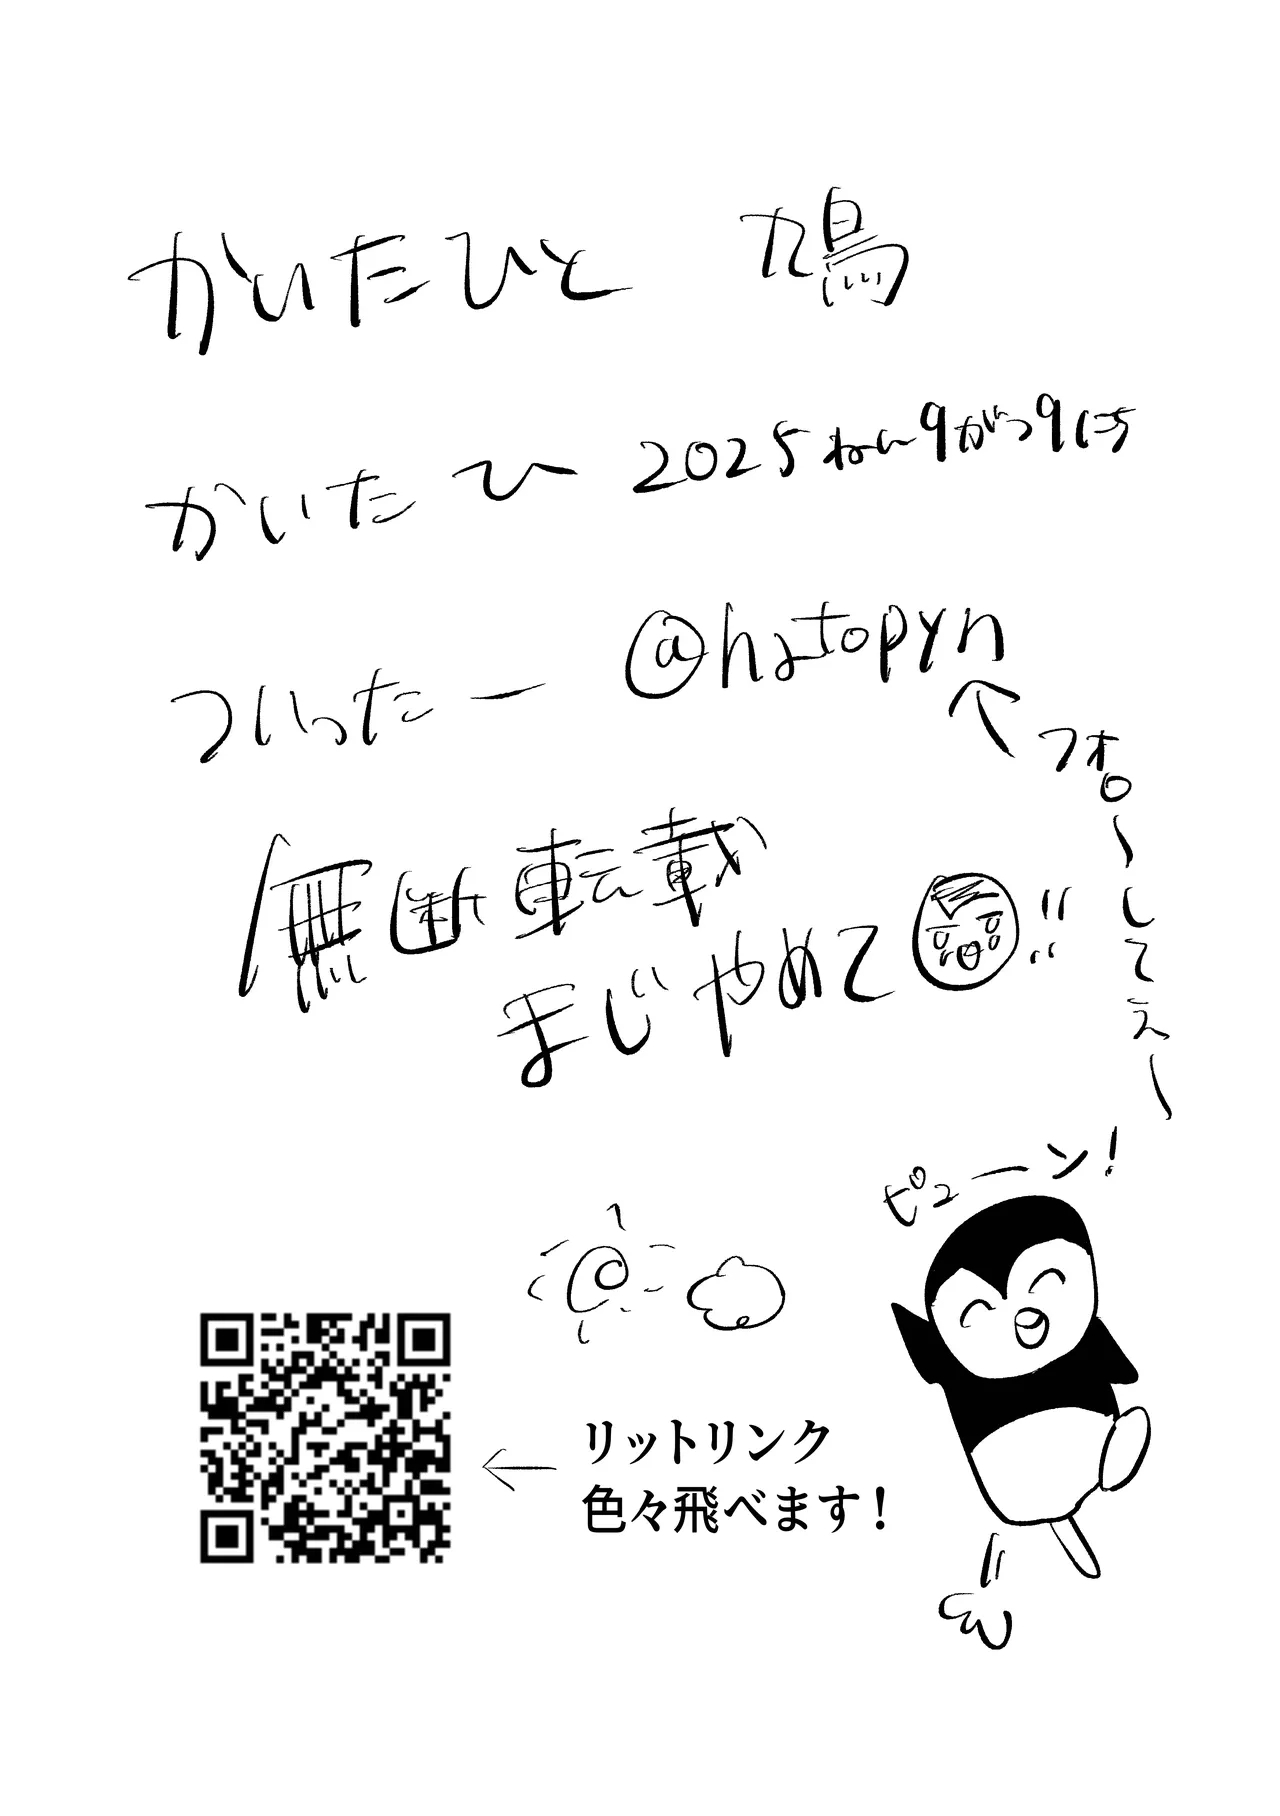 かいたひと 鳩
かいたひ 2025ねん9がつ9にち
ついったー @hatopyn
↑フォロ〜してぇ〜
無断転載
まじやめて!!
ピューン!
←リットリンク
色々飛べます!